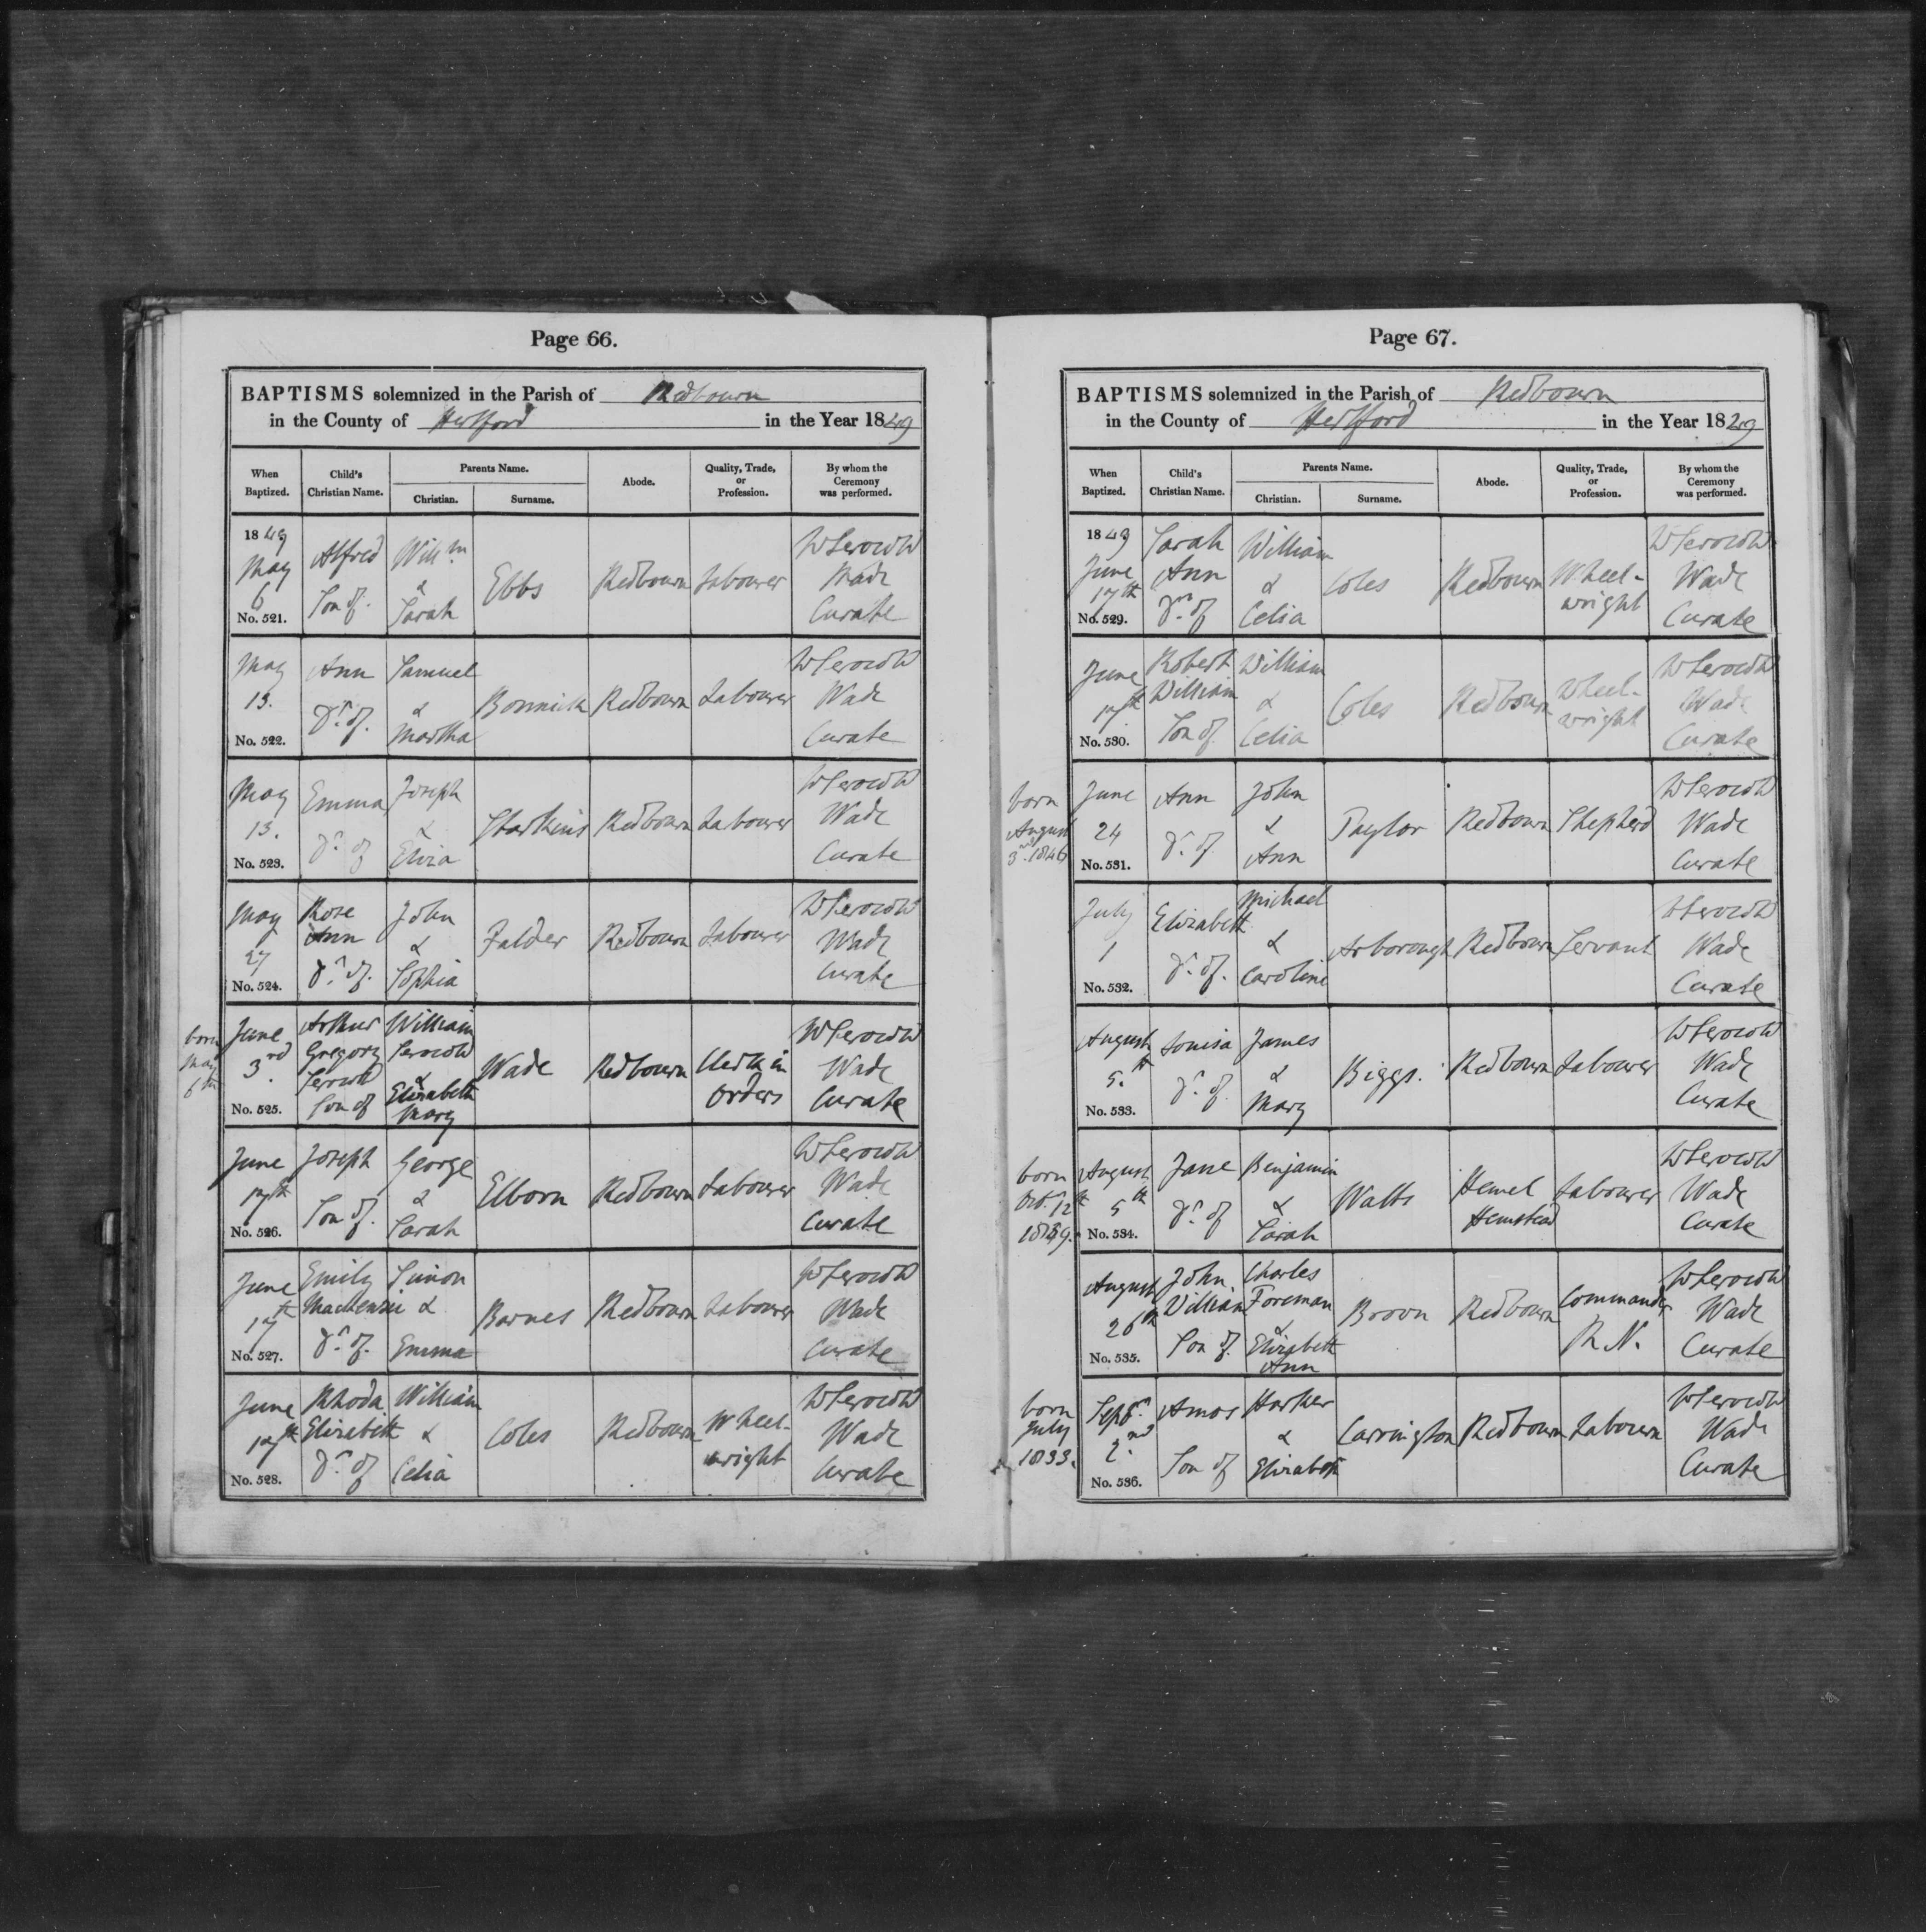 Page 66.
BAPTISMS solemnized in the Parish of Redbourn
in the County of Hertford in the Year 1849
When Baptized. Child's Christian Name. Parents Name. Christian. Surname. Abode. Quality, Trade, or Profession. By whom the Ceremony was performed.
1849 May 6 No. 521. Alfred Son of. Willm & Sarah Ebbs Redbourn Labourer W Serocold Wade Curate
May 13. No. 522. Ann Dr. of. Samuel & Martha Bonnick Redbourn Labourer W Serocold Wade Curate
May 13. No. 523. Emma Dr. of Joseph & Eliza Redbourn Labourer W Serocold Wade Curate
May 27 No. 524. Rose Ann Dr. of. John & Sophia Falder Redbourn Labourer W Serocold Wade Curate
born May 6th June 3rd. No. 525. Arthur Gregory Serocold Son of William Serocold & Elizabeth Mary Wade Redbourn Clerk in Orders W Serocold Wade Curate
June 17th No. 526. Joseph Son of. George & Sarah Elborn Redbourn Labourer W Serocold Wade Curate
June 17th No. 527. Emily Mackenzie Dr. of. Simon & Emma Barnes Redbourn Labourer W Serocold Wade Curate
June 17th No. 528. Rhoda Elizabeth Dr. of William & Celia Coles Redbourn Wheel-wright W Serocold Wade Curate
Page 67.
BAPTISMS solemnized in the Parish of Redbourn
in the County of Hertford in the Year 1849
When Baptized. Child's Christian Name. Parents Name. Christian. Surname. Abode. Quality, Trade, or Profession. By whom the Ceremony was performed.
1849 June 17th No. 529. Sarah Ann Dr. of William & Celia Coles Redbourn Wheel-wright W Serocold Wade Curate
June 17th No. 530. Robert William Son of William & Celia Coles Redbourn Wheel-wright W Serocold Wade Curate
born August 3rd. 1846 June 24 No. 531. Ann Dr. of John & Ann Taylor Redbourn Shepherd W Serocold Wade Curate
July 1 No. 532. Elizabeth Dr. of. Michael & Caroline Arborough Redbourn Servant W Serocold Wade Curate
August 5.th No. 533. Louisa Dr. of James & Mary Biggs. Redbourn Labourer W Serocold Wade Curate
born 12th August 5th No. 534. Jane Dr. of Benjamin & Sarah Watts Hemel Hemstead Labourer W Serocold Wade Curate
August 26th No. 535. John William Son of Charles Foreman & Elizabeth Ann Brown Redbourn Commander R.N. W Serocold Wade Curate
born July 1833. Septr. 2nd. No. 536. Amos Son of Harker & Elizabeth Carrington Redbourn Labourn W Serocold Wade Curate